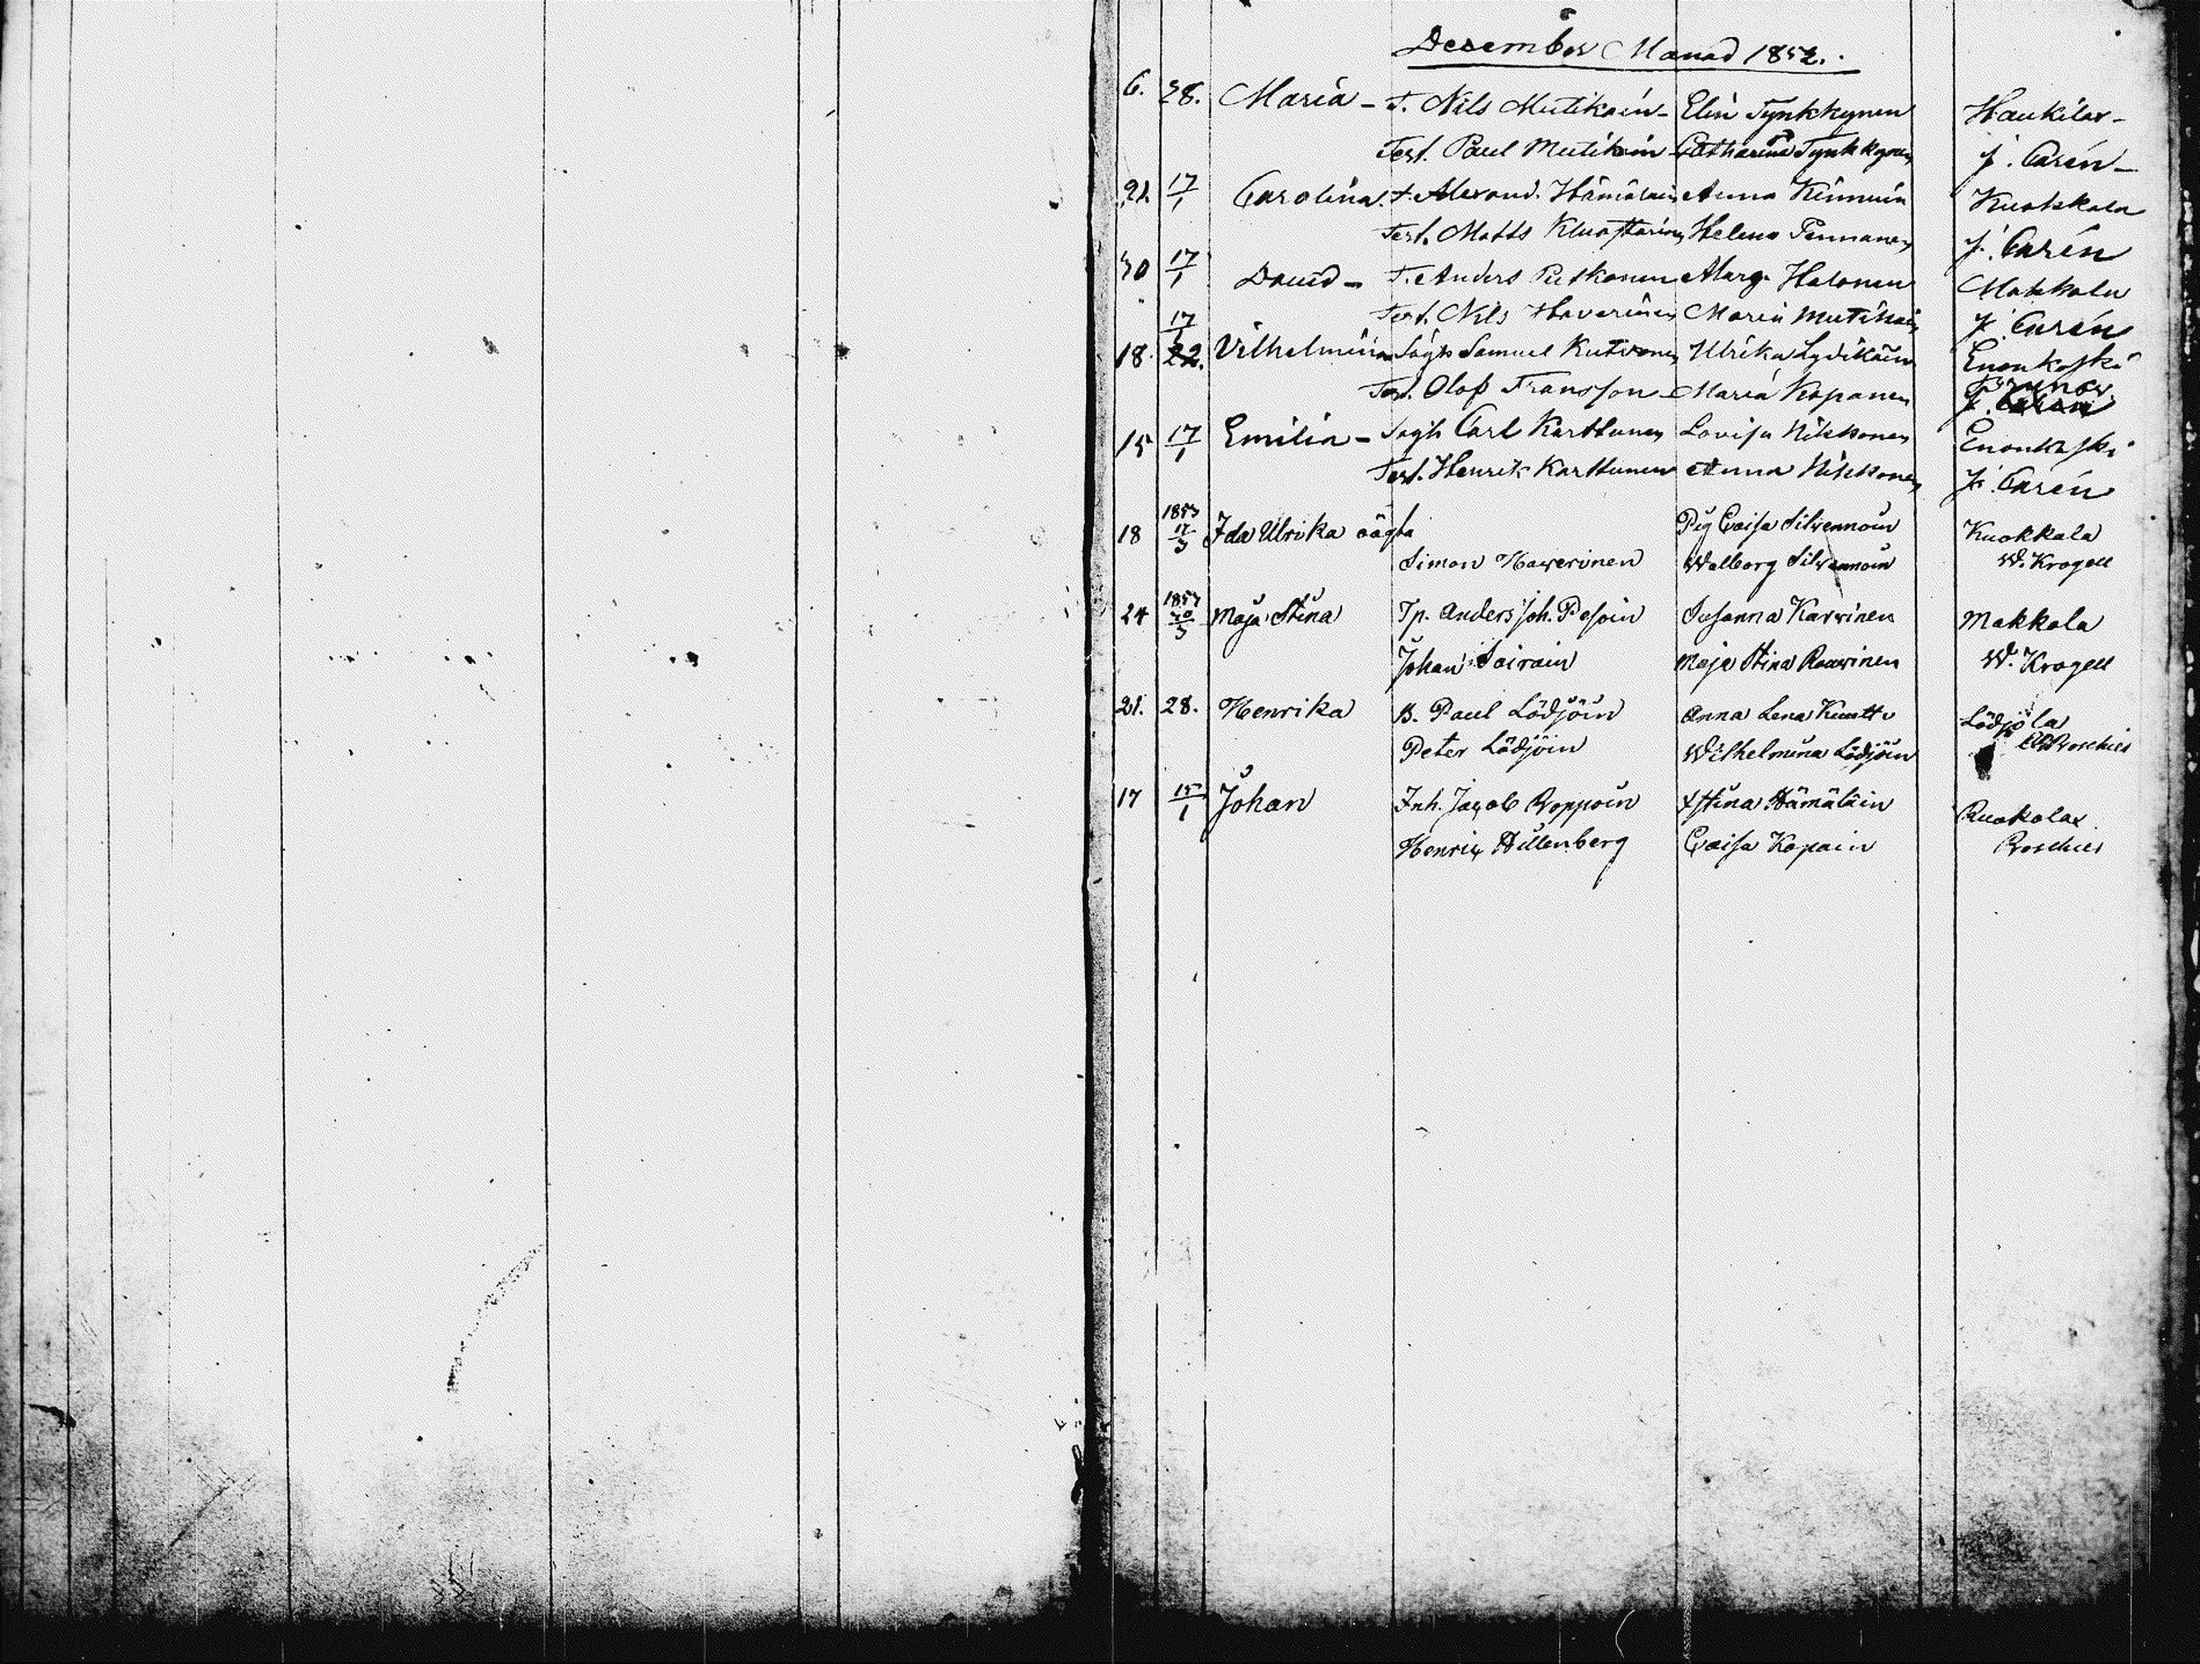 December Månad 1852.
6. 28. Maria - T. Nils Mutikain - Elin Tynkkynen Haukilax -
Test. Paul Mutikain - Catharina Tynkkynen J. Carén -
21. 17/1 Carolina. T. Alexand. Hämäläin Anna Kinnuin Kuokkala
Test. Matts Helena Pennanen J. Carén
30 17/1 David - T. Anders Putkonen Marg. Halonen Makkola
Test. Nils Haverinen Maria Mutikain J. Carén
18. 17/1 22. Vilhelmina Sågk Samuel Kutvonen Ulrika Lydikäin Enonkoski
Test. Olof Fransson - Maria Kopanen
15 17/1 Emilia - Sagk Carl Karttunen Lovisa Nikkonen Enonkoski
Test. Henrik Karttunen Anna Nikkonen J. Carén
18 1853 17/3 Ida Ulrika oägta Pig Caisa Silvennoin Kuokkala
Simon Haverinen Walborg Silvennoin W. Krogell
24 1853 20/3 Maja Stina Tp. Anders Joh. Pesoin Susanna Karvinen Makkola
Johan Soirain Maja Stina Rouvinen W. Krogell
21. 28. Henrika B. Paul Lödjöin Anna Lena Kunttu Lödjölä
Peter Lödjöin Wilhelmina Lödjöin Roschier
17 15/1 Johan Inh. Jacob Roppoin Xstina Hämäläin Ruokolax
Henric Hillenberg Caisa Kopain Roschier